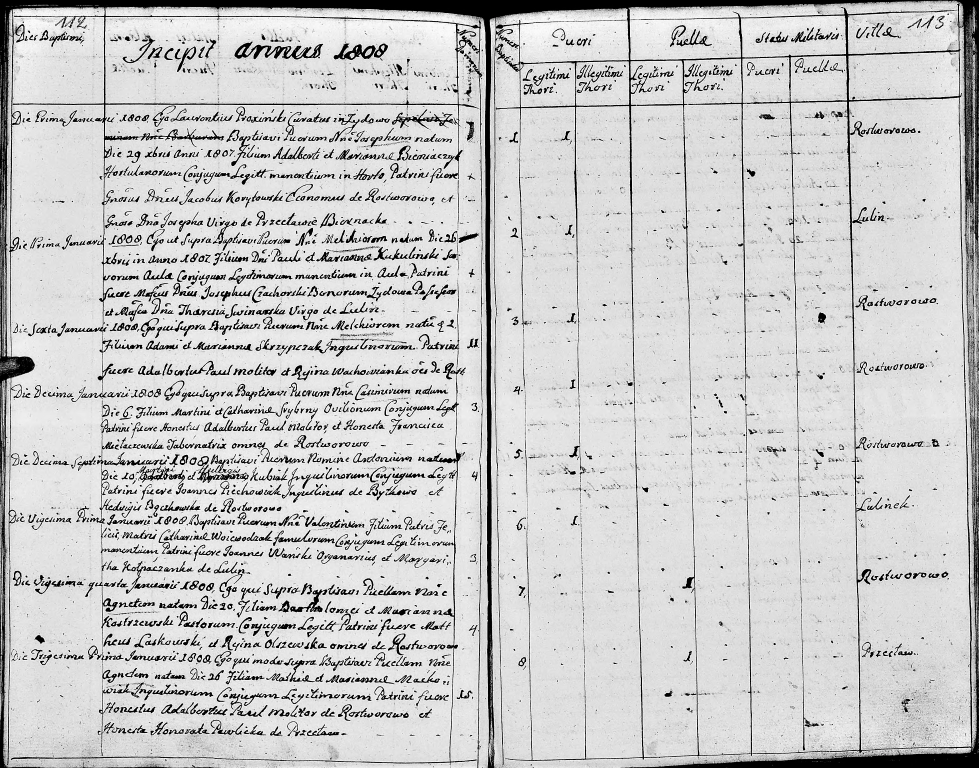 112
Dies Baptismi,
Incipit annus 1808
Die Prima Januarii 1808 Ego Laurentius Proxiński Curatus in Zydowo
Baptisavi Puerum Nne Josephum natum
Die 29 xbris Anni 1807. Filium Adalberti et Marianna Bieniaczyk
Hortulanorum Conjugum Legitt. manentium in Horto, Patrini fuere
Gnosus Dnus Jacobus Korytowski Economus de Rostworowo, et
Gnosa Dna Josepha Virgo de Przecławie Biernacka
Die Prima Januarii 1808. Ego ut Supra Baptisavi Puerum Nne Melchiorem natum Die 26
xbris in Anno 1807 Filium Dni Pauli et Marianna Kukulinski
vorum Aula Conjugum Legitimorum manentium in Aula, Patrini
fuere Mgfcus Dnus Josephus Czachorski Bonorum Zydowa Possessor
et Mgfca Dna Theresia Swinarska Virgo de Lulin.
Die Sexta Januarii 1808, Ego qui Supra Baptisavi Puerum Nne Melchiorem
Filium Adami et Marianna Skrzypczak Inquilinorum. Patrini
fuere Adalbertus Paul molitor et Regina Wachowianka oes de Rost.
Die Decima Januarii 1808 Ego qui Supra Baptisavi Puerum Nne Casimirum natum
Die 6. Filium Martini et Catharina Srybrny Ovilionum Conjugum Legtt
Patrini fuere Honestus Adalbertus Paul Molitor, et Honesta Francisca
Tabernatrix omnes de Rostworowo
Die Decima Septima Januarii 1808 Baptisavi Puerum Nomine Antonium natum
Die 10, et Kubiak Inquilinorum Conjugum Legtt
Patrini fuere Joannes Piechowiak Inquilinus de Bytkowo et
Hedvigis de Rostworowo
Die Vigesima Prima Januarii 1808. Baptisavi Puerum Nne Valentinum Filium Patris Fe-
licis, Matris Catharina Woiewodzak famulorum Conjugum Legitimorum
manentium, Patrini fuere Joannes Wański Organarius, et Margari-
tha Kołpaczanka de Lulin.
Die Vigesima quarta Januarii 1808, Ego qui Supra Baptisavi Puellam Nne
Agnetem natam Die 20. Filiam Bartholomei et Marianna
Kostrzewski Pastorum Conjugum Legitt, Patrini fuere Matt
heus Laskowski, et Regina Olszewska omnes de Rostworowo
Die Trigesima Prima Januarii 1808. Ego qui modo supra Baptisavi Puellam Nne
Agnetem natam Die 26 Filiam Mathei et Marianna Macko-
wiak Inquilinorum Conjugum Legitimorum Patrini fuere
Honestus Adalbertus Paul molitor de Rostworowo et
Honesta Honorata Pawlicka de Przecław
113
Pueri Puellæ Status Militaris Villæ
Legitimi Thori. Illegitimi Thori Legitimi Thori Illegitimi Thori. Pueri Puellæ
1 1, Rostworowo.
2 1, Lulin
3 1, Rostworowo.
4. 1 Rostworowo.
5. 1 Rostworowo
6. 1 Lulinek.
7, 1, Rostworowo,
8 1, Przecław.